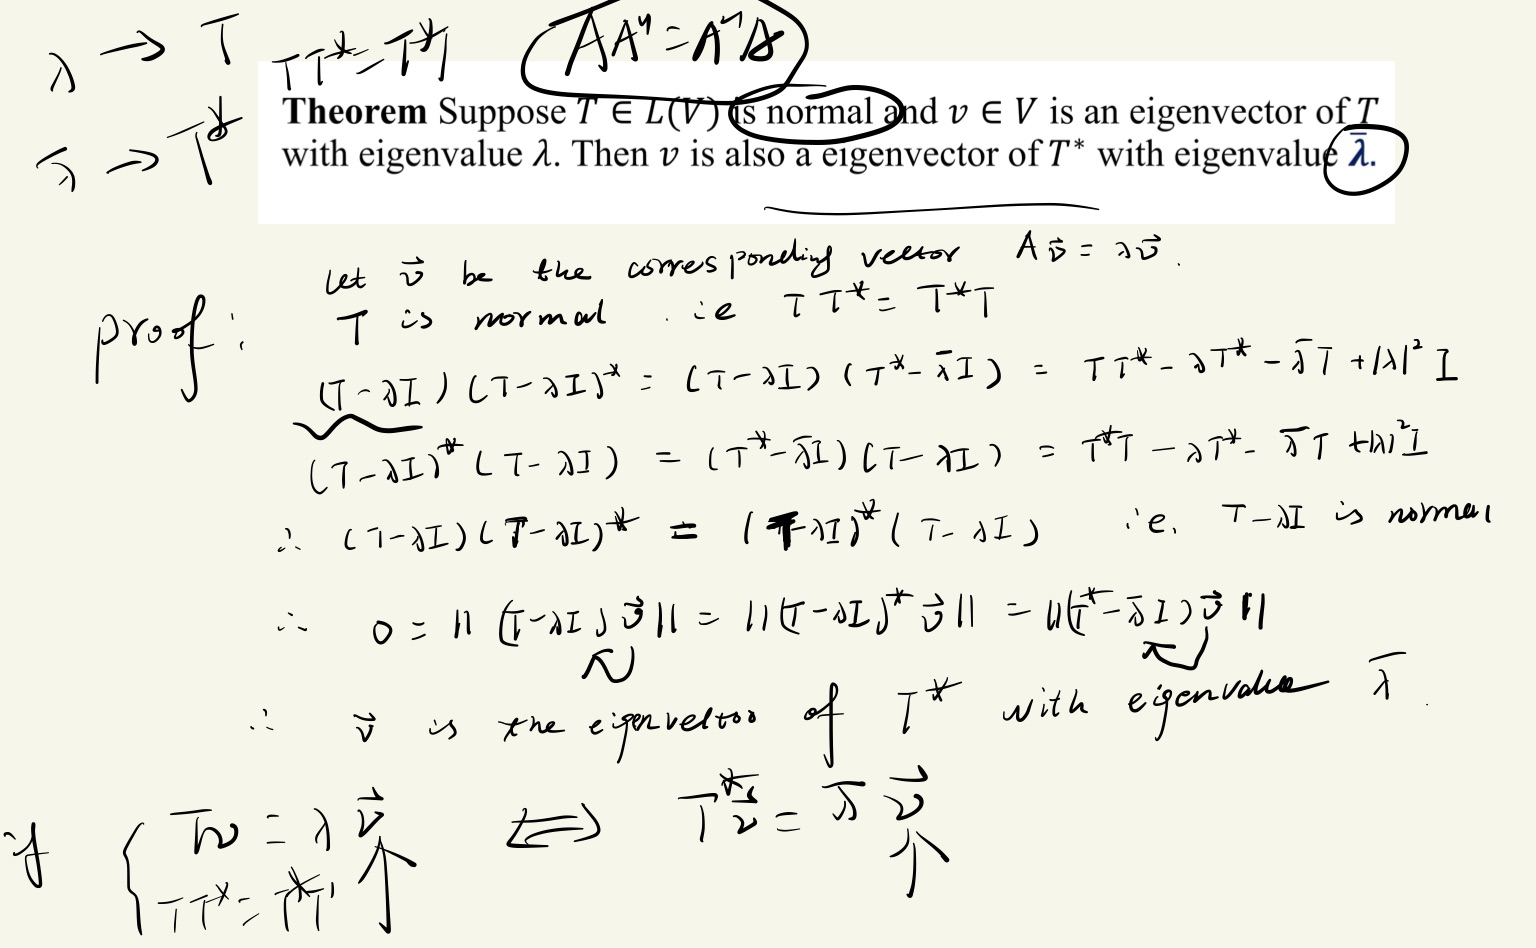 λ → T
TT* = T*T
AAᴴ = AᴴA
λ̄ → T*
Theorem Suppose T ∈ L(V) is normal and v ∈ V is an eigenvector of T
with eigenvalue λ. Then v is also a eigenvector of T* with eigenvalue λ̄.
proof:
Let v⃗ be the corresponding vector Av⃗ = λv⃗.
T is normal. i.e TT* = T*T
(T-λI)(T-λI)* = (T-λI)(T*-λ̄I) = TT* - λT* - λ̄T + |λ|²I
(T-λI)*(T-λI) = (T*-λ̄I)(T-λI) = T*T - λT* - λ̄T + |λ|²I
∴ (T-λI)(T-λI)* = (T-λI)*(T-λI) i.e. T-λI is normal
∴ 0 = ||(T-λI)v⃗|| = ||(T-λI)*v⃗|| = ||(T*-λ̄I)v⃗||
∴ v⃗ is the eigenvector of T* with eigenvalue λ̄.
if { Tv = λv⃗ ⟺ T*v⃗ = λ̄v⃗
TT* = T*T